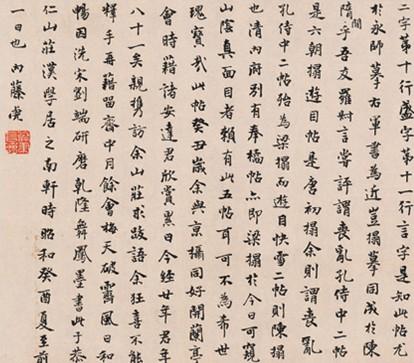 二字第十行盛字第十一行言字是知此帖尤
於永師摹右軍書為近豈搨摹同成於陳
隋間乎吾友羅叔言嘗評謂喪亂孔侍中二帖
是六朝搨遊目帖是唐初搨余則謂喪亂
孔侍中二帖殆為梁搨而遊目快雪二帖則陳搨
也清內府別有奉橘帖亦即梁搨於今日可窺
山陰真面目者賴有此五帖耳可不為希世
瑰寶哉此帖癸丑歲余與京攝同好開蘭亭
會時藉諸安達君欣賞累日今經廿年君年
八十一矣親携訪余山莊求跋語余狂喜不能
釋手再藉留齋中月餘會梅天破霽風日和
暢因洗宋劉端研磨乾隆舞鳳墨書此于恭
仁山莊漢學居之南軒時昭和癸酉夏至前
一日也 內藤虎